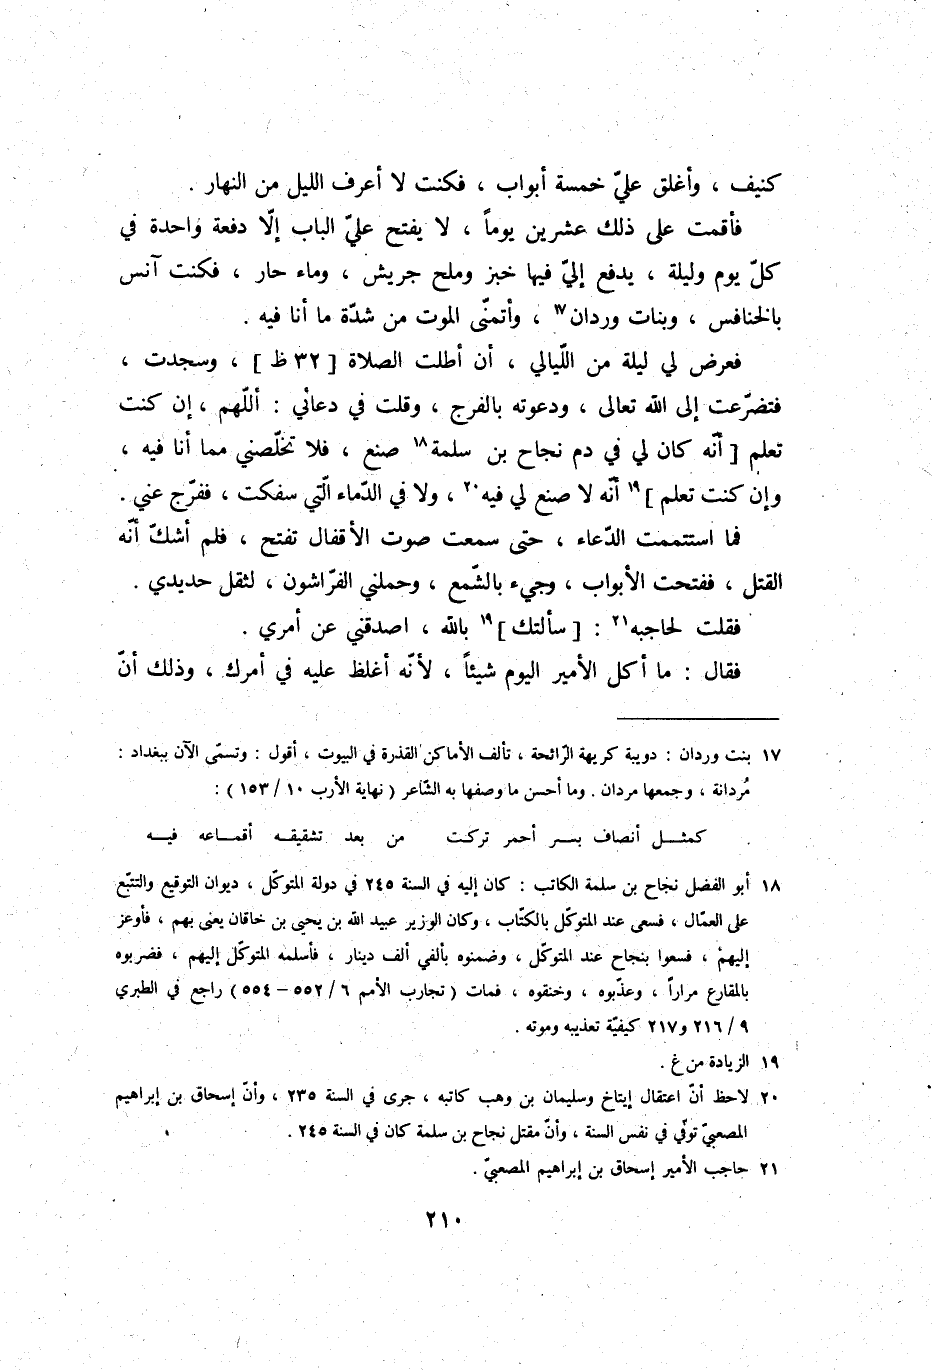 كنيف ، وأغلق عليّ خمسة أبواب ، فكنت لا أعرف الليل من النهار .
فأقمت على ذلك عشرين يوماً ، لا يفتح عليّ الباب إلّا دفعة واحدة في
كلّ يوم وليلة ، يدفع إليّ فيها خبز وملح جريش ، وماء حار ، فكنت آنس
بالخنافس ، وبنات وردان١٧ ، وأتمنّى الموت من شدّة ما أنا فيه .
فعرض لي ليلة من اللّيالي ، أن أطلت الصلاة [ ٣٢ ظ ] ، وسجدت ،
فتضرّعت إلى الله تعالى ، ودعوته بالفرج ، وقلت في دعائي : أللّهم ، إن كنت
تعلم [ أنّه كان لي في دم نجاح بن سلمة١٨ صنع ، فلا تخلّصني مما أنا فيه ،
وإن كنت تعلم ]١٩ أنّه لا صنع لي فيه٢٠ ، ولا في الدّماء الّتي سفكت ، ففرّج عني .
فما استتممت الدّعاء ، حتى سمعت صوت الأقفال تفتح ، فلم أشكّ أنّه
القتل ، ففتحت الأبواب ، وجيء بالشّمع ، وحملني الفرّاشون ، لثقل حديدي .
فقلت لحاجبه٢١ : [ سألتك ]١٩ بالله ، اصدقني عن أمري .
فقال : ما أكل الأمير اليوم شيئاً ، لأنّه أغلظ عليه في أمرك ، وذلك أنّ
١٧ بنت وردان : دويبة كريهة الرّائحة ، تألف الأماكن القذرة في البيوت ، أقول : وتسمّى الآن ببغداد :
مُردانة ، وجمعها مردان . وما أحسن ما وصفها به الشّاعر ( نهاية الأرب ١٠ / ١٥٣ ) :
كمثـل أنصاف بسـر أحمر تركت من بعد تشقيقـه أقمـاعه فيـه
١٨ أبو الفضل نجاح بن سلمة الكاتب : كان إليه في السنة ٢٤٥ في دولة المتوكّل ، ديوان التوقيع والتتبّع
على العمّال ، فسعى عند المتوكّل بالكتّاب ، وكان الوزير عبيد الله بن يحيى بن خاقان يعنى بهم ، فأوعز
إليهم ، فسعوا بنجاح عند المتوكّل ، وضمنوه بألفي ألف دينار ، فأسلمه المتوكّل إليهم ، فضربوه
بالمقارع مراراً ، وعذّبوه ، وخنقوه ، فمات ( تجارب الأمم ٦ / ٥٥٢ - ٥٥٤ ) راجع في الطبري
٩ / ٢١٦ و٢١٧ كيفيّة تعذيبه وموته .
١٩ الزيادة من غ .
٢٠ لاحظ أنّ اعتقال إيتاخ وسليمان بن وهب كاتبه ، جرى في السنة ٢٣٥ ، وأنّ إسحاق بن إبراهيم
المصعبيّ توفّي في نفس السنة ، وأنّ مقتل نجاح بن سلمة كان في السنة ٢٤٥ .
٢١ حاجب الأمير إسحاق بن إبراهيم المصعبيّ .
٢١٠